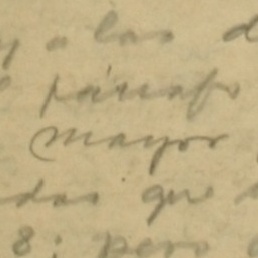 y a las d
párrafo
mayor
das que
8: pero